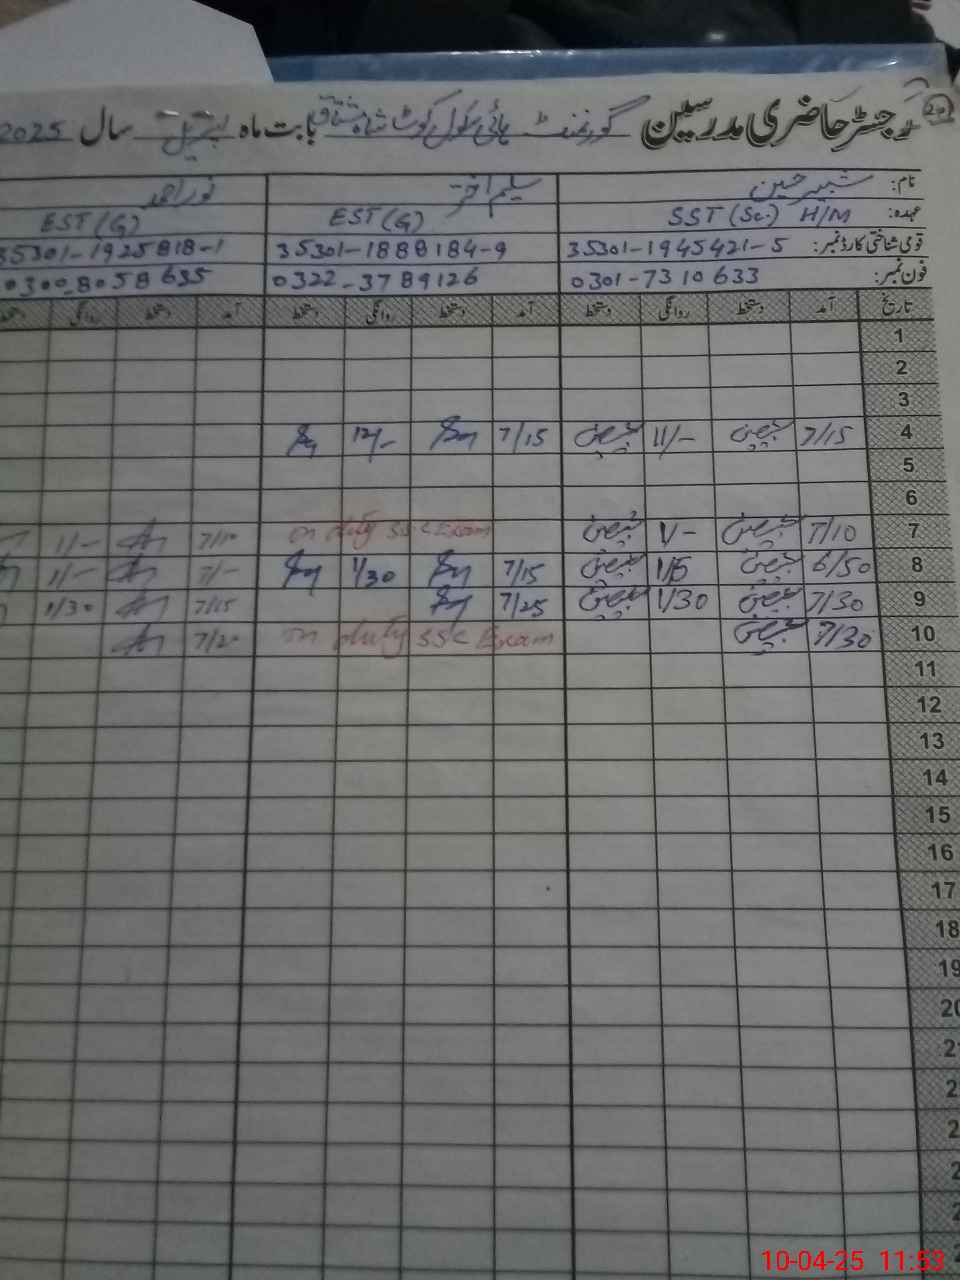 رجسٹر حاضری مدرسین گورنمنٹ ہائی سکول کوٹ شاہ مشتاق بابت ماہ اپریل سال 2025
نام: شبیر حسین سلیم اختر نور احمد
عہدہ: SST (Sc.) H/M EST (G) EST (G)
قومی شناختی کارڈ نمبر: 35301-1945421-5 35301-1888184-9 35301-1925818-1
فون نمبر: 0301-7310633 0322-3789126 0300-8058635
تاریخ آمد دستخط روانگی دستخط آمد دستخط روانگی دستخط آمد دستخط روانگی دستخط
1
2
3
4 7/15 11/- 7/15 12/-
5
6
7 7/10 1/- on duty SSC Exam 7/10 1/-
8 6/50 1/5 7/15 1/30 7/- 1/-
9 7/30 1/30 7/25 7/15 1/30
10 7/30 on duty SSC Exam 7/20
11
12
13
14
15
16
17
18
19
20
10-04-25 11:53